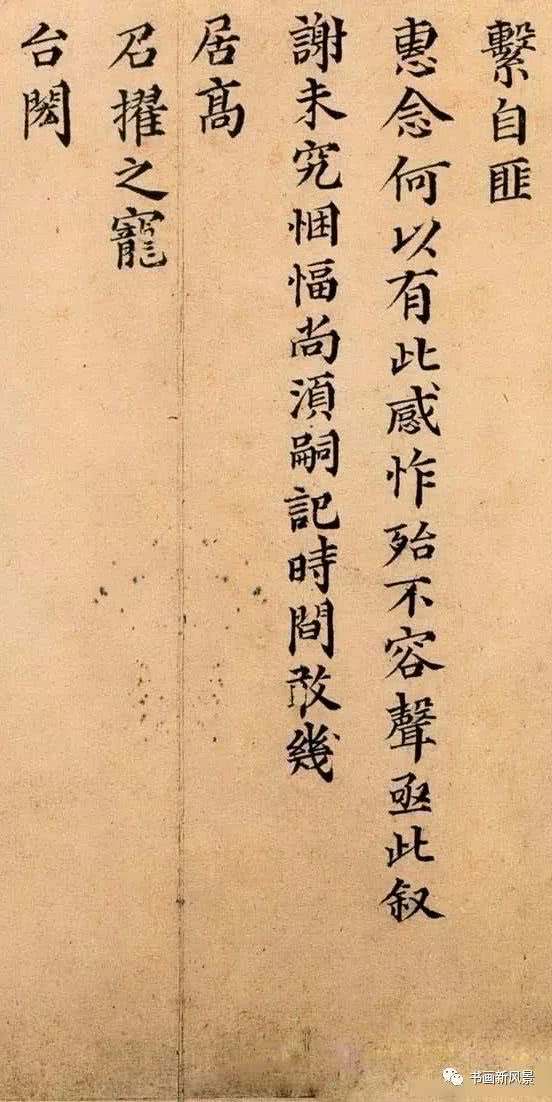 繫自匪
惠念何以有此感怍殆不容聲亟此叙
謝未究悃愊尚湏嗣記時間敢幾
居髙
召擢之寵
台閎
书画新风景